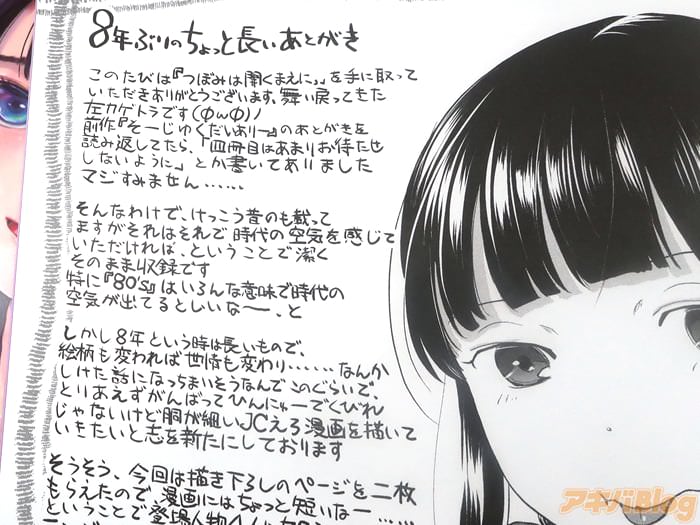 8年ぶりのちょっと長いあとがき
このたびは『つぼみは開くまえに。』を手に取って
いただきありがとうございます。舞い戻ってきた
左カゲトラです(ΦωΦ)ノ
前作『そーじゅくだいありー』のあとがきを
読み返してたら、「四冊目はあまりお待たせ
しないように」とか書いてありました
マジすみません……
そんなわけで、けっこう昔のも載って
ますがそれはそれで時代の空気を感じて
いただければ、ということで潔く
そのまま収録です
特に『80's』はいろんな意味で時代の
空気が出てるといいなー、と
しかし8年という時は長いもので、
絵柄も変われば世情も変わり……なんか
しけた話になっちまいそうなんでこのぐらいで、
そうそう、今回は描き下ろしのページを二枚
もらえたので、漫画にはちょっと短いなー…
ということで登場人物
アキバBlog